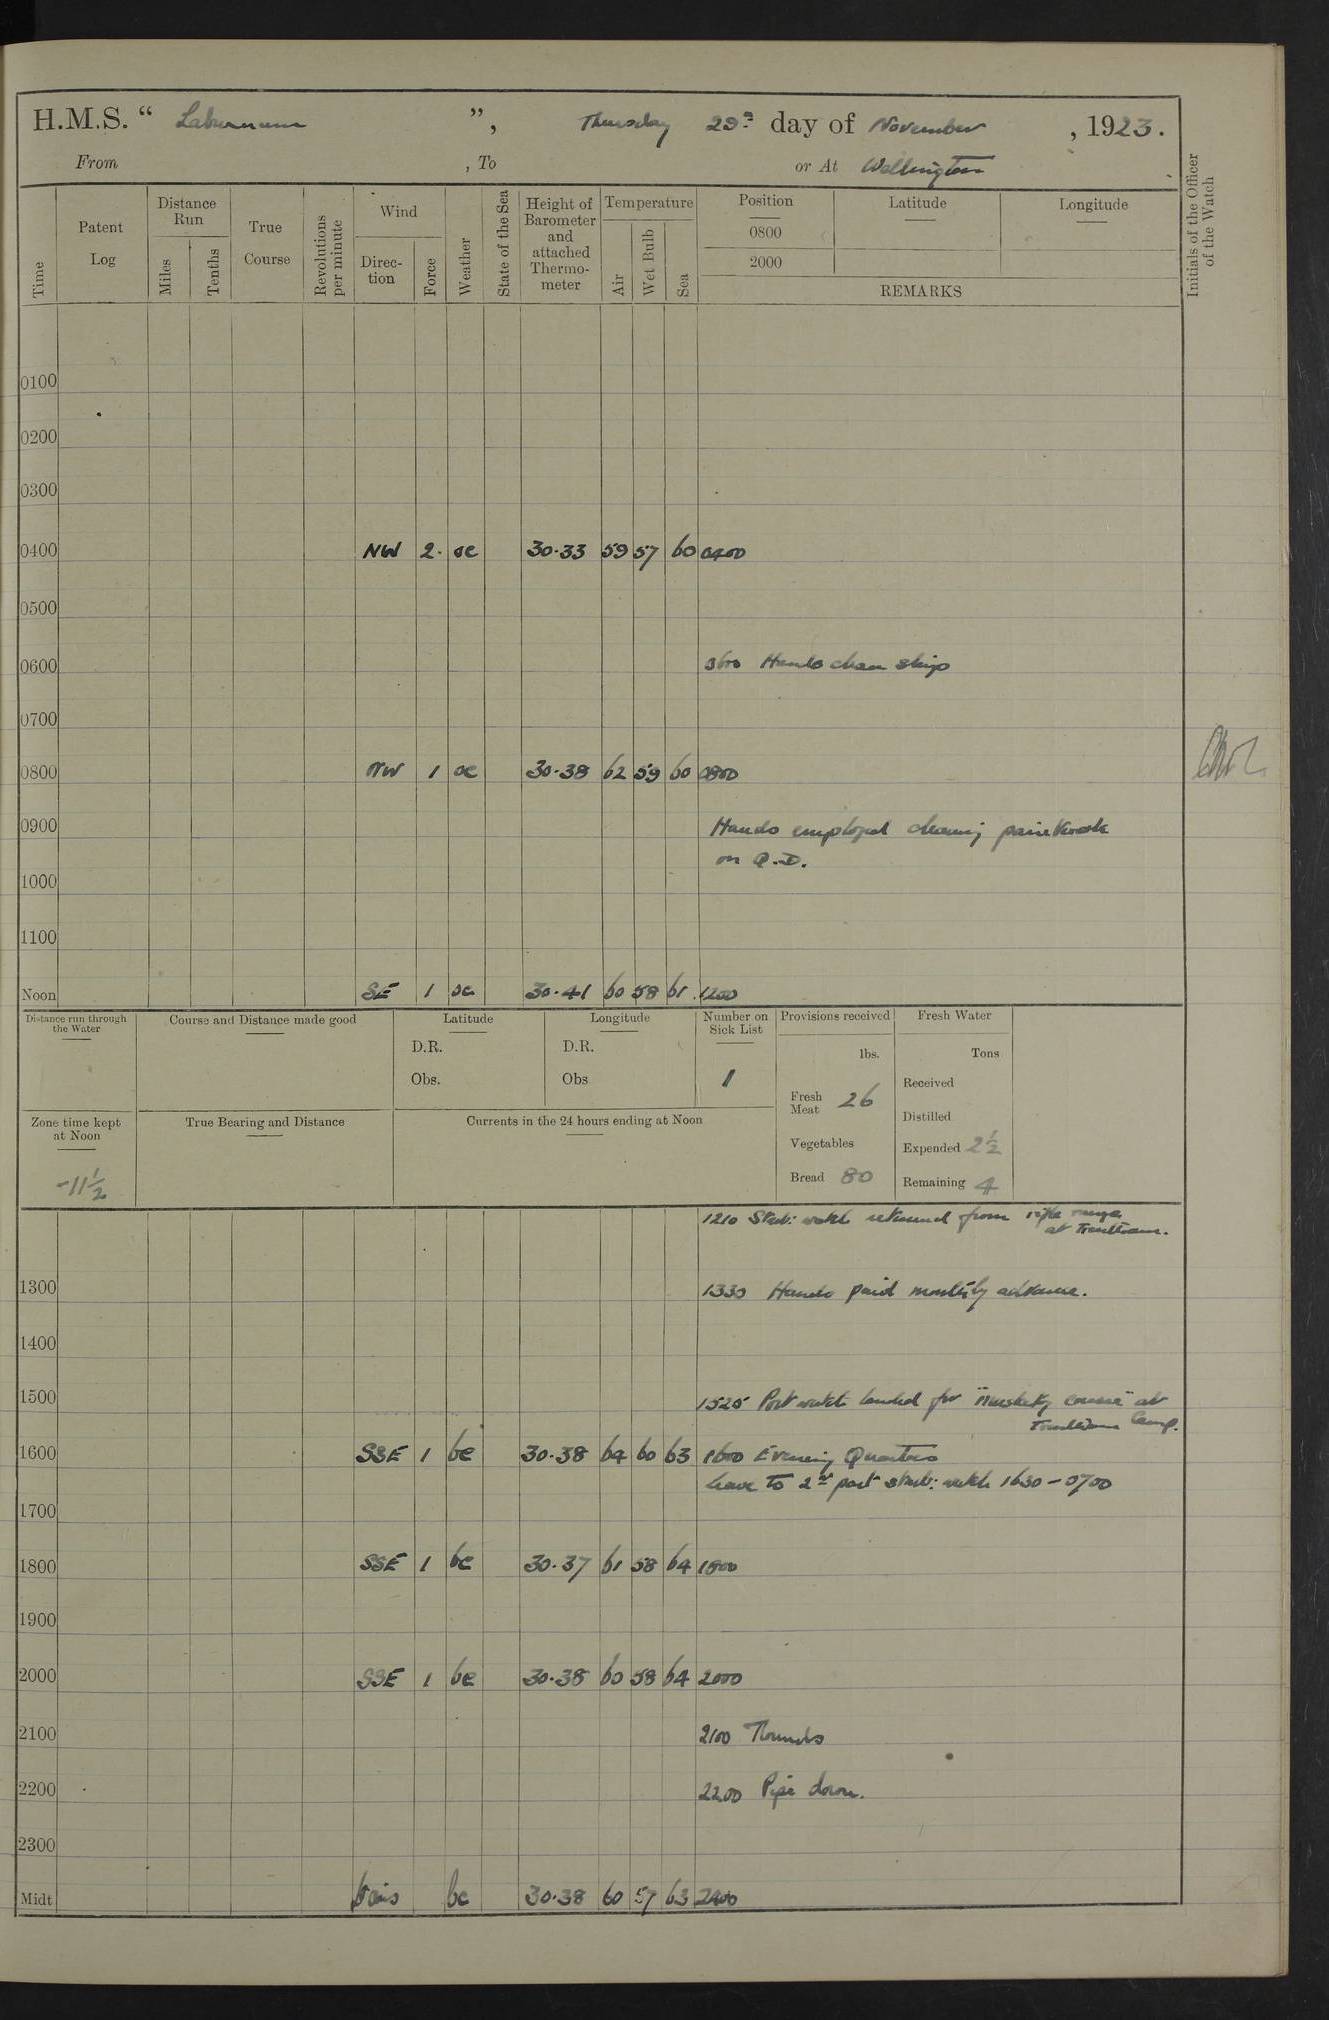 H.M.S. “ Laburnum ”, Thursday 29th day of November, 1923.
From , To or At Wellington
Time
Patent Log
Distance Run
Miles
Tenths
True Course
Revolutions per minute
Wind
Direc-tion
Force
Weather
State of the Sea
Height of Barometer and attached Thermo-meter
Temperature
Air
Wet Bulb
Sea
Position
0800
2000
Latitude
Longitude
REMARKS
Initials of the Officer of the Watch
0100
0200
0300
0400 NW 2 oc 30.33 59 57 60 0400
0500
0600 0600 Hands clean ship
0700
0800 NW 1 oc 30.38 62 59 60 0800
0900 Hands employed cleaning paintwork
on Q.D.
1000
1100
Noon SE 1 oc 30.41 60 58 61 1200
Distance run through the Water
Course and Distance made good
Latitude
D.R.
Obs.
Longitude
D.R.
Obs
Number on Sick List
1
Provisions received
lbs.
Fresh Meat 26
Vegetables
Bread 80
Fresh Water
Tons
Received
Distilled
Expended 2½
Remaining 4
Zone time kept at Noon
-11½
True Bearing and Distance
Currents in the 24 hours ending at Noon
1210 Starb: watch returned from rifle range
at Trentham.
1300 1330 Hands paid monthly advance.
1400
1500 1525 Port watch landed for "Musketry course" at
Trentham Camp.
1600 SSE 1 bc 30.38 64 60 63 1600 Evening Quarters
Leave to 2nd part starb: watch 1630 - 0700
1700
1800 SSE 1 bc 30.37 61 58 64 1800
1900
2000 SSE 1 bc 30.38 60 58 64 2000
2100 2100 Rounds
2200 2200 Pipe down.
2300
Midt bc 30.38 60 57 63 2400